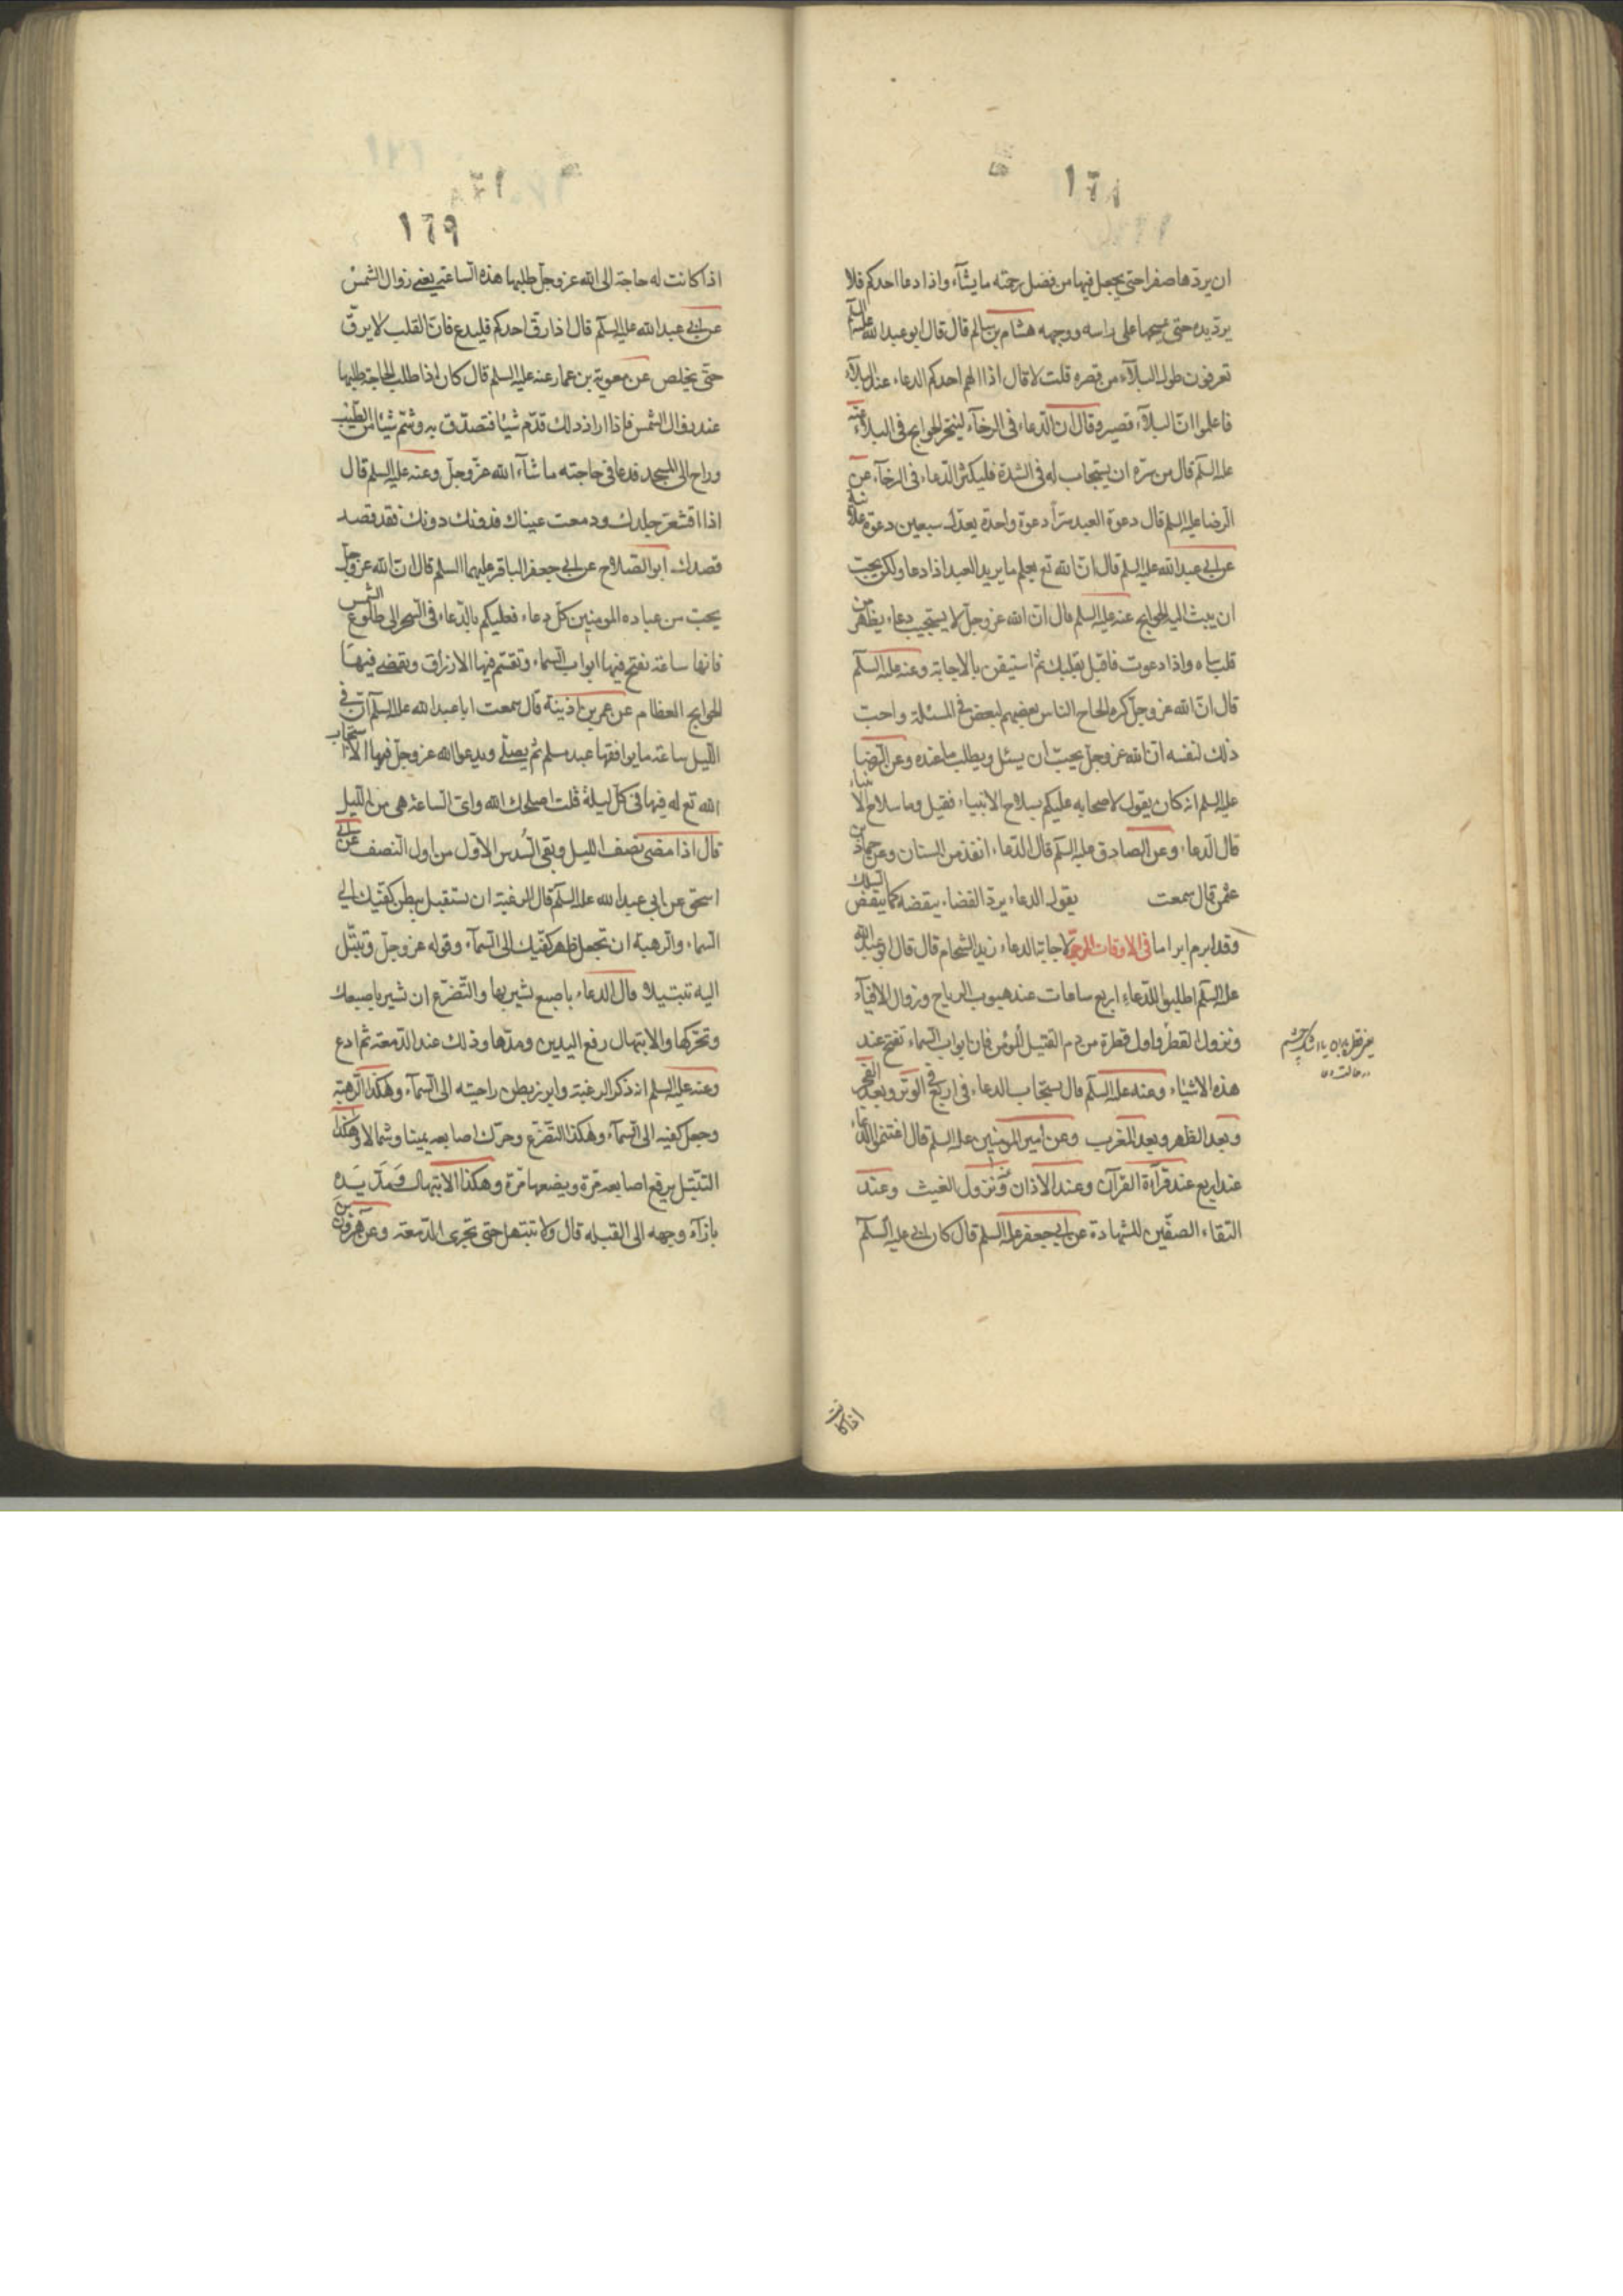 ١٦٨
ان يردها صفرا حتى يجعل فيها من فضل رحمته ما يشآء واذا دعا احدكم فلا
يرد يده حتى يمسحها على راسه ووجهه هشام بن سالم قال قال ابو عبد الله عليه السلم
تعرفون طول البلآء من قصره قلت لا قال اذا الهم احدكم الدعاء عند البلآء
فاعلموا انّ البلآء قصير وقال ان الدّعاء فى الرخآء ليستخرج الحوايج فى البلاء وعنه
عليه السلم قال من سره ان يستجاب له فى الشدة فليكثر الدّعاء فى الرخآء عن
الرضا عليه السلم قال دعوة العبد سرّاً دعوة واحدة يعدل سبعين دعوة علانية
عن ابى عبد الله عليه السلم قال انّ الله تع يعلم ما يريد العبد اذا دعا ولكن يحبّ
ان يبث اليه الحوايج عنه عليه السلم قال انّ الله عز وجل لا يستجيب دعاء بظهر من
قلب ساه واذا دعوت فاقبل بقلبك ثم استيقن بالاجابة وعنه عليه السلم
قال انّ الله عز وجل كره الحاح الناس بعضهم لبعض فى المسئلة واحب
ذلك لنفسه ان الله عز وجل يحبّ ان يسئل ويطلب ما عنده وعن الرضا
عليه السلم انه كان يقول لاصحابه عليكم بسلاح الانبياء فقيل وما سلاح الانبياء
قال الدعاء وعن الصادق عليه السلم قال الدّعاء انفذ من السنان وعن حماد بن
عثمن قال سمعت يقول الدعاء يردّ القضاء ينقضه كما ينقض السلك
وقد ابرم ابراما فى الاوقات المرجوّ لاجابة الدعاء زيد الشحام قال قال ابو عبد الله
عليه السلم اطلبوا للدّعاء اربع ساعات عند هبوب الرياح وزوال الافيآء
ونزول القطر واول قطرة من دم القتيل المؤمن فان ابواب السماء تفتح عند
هذه الاشياء وعنه عليه السلم قال يستجاب الدعاء فى اربع فى الوتر وبعد الفجر
وبعد الظهر وبعد المغرب وعن امير المومنين عليه السلم قال اغتنموا الدعاء
عند اربع عند قرآءة القرآن وعند الاذان وعند نزول الغيث وعند
التقاء الصفّين للشهادة عن ابى جعفر عليه السلم قال كان ابى عليه السلم
اذا كانت
١٦٩
اذا كانت له حاجة الى الله عز وجل طلبها هذه الساعة يعنى زوال الشمس
عن ابى عبد الله عليه السلم قال اذا رقّ احدكم فليدع فانّ القلب لا يرقّ
حتّى يخلص عن معوية بن عمار عنه عليه السلم قال كان اذا طلب الحاجة طلبها
عند زوال الشمس فاذا اراد ذلك قدّم شيئا فتصدّق به وشمّ شيئا من الطيب
وراح الى المسجد فدعا فى حاجته ما شآء الله عزّ وجلّ وعنه عليه السلم قال
اذا اقشعرّ جلدك ودمعت عيناك فدونك دونك فقد قصد
قصدك ابو الصلاح عن ابى جعفر الباقر عليهما السلم قال انّ الله عز وجل
يحبّ من عباده المومنين كلّ دعاء فعليكم بالدّعاء فى السحر الى طلوع الشمس
فانها ساعة تفتح فيها ابواب السماء وتقسّم فيها الارزاق وتقضى فيها
الحوايج العظام عن عمر بن اذينة قال سمعت ابا عبد الله عليه السلم ان فى
الليل ساعة ما يوافقها عبد مسلم ثم يصلّى ويدعو الله عز وجل فيها الا استجاب
الله تع له فيها فى كلّ ليلة قلت اصلحك الله واىّ الساعة هى من الليل
قال اذا مضى نصف الليل وبقى السُدس الاوّل من اول النصف عن ابى
اسحق عن ابى عبد الله عليه السلم قال الرغبة ان تستقبل ببطن كفّيك الى
السماء والرهبة ان تجعل ظهر كفّيك الى السمآء وقوله عز وجل وتبتّل
اليه تبتيلا قال الدعاء باصبع تشير بها والتّضرّع ان تشير باصبعك
وتحرّكها والابتهال رفع اليدين ومدّها وذلك عند الدّمعة ثم ادع
وعنه عليه السلم انه ذكر الرغبة وابرز بطن راحيته الى السمآء وهكذا الرّهبة
وجعل كفيه الى السمآء وهكذا التّضرّع وحرّك اصابعه يمينا وشمالا وهكذا
التبتّل يرفع اصابعه مرّة ويضعها مرّة وهكذا الابتهال ومَدّ يَده
بازآء وجهه الى القبله قال ولا تبتهل حتى تجرى الدّمعة وعن هرون بن